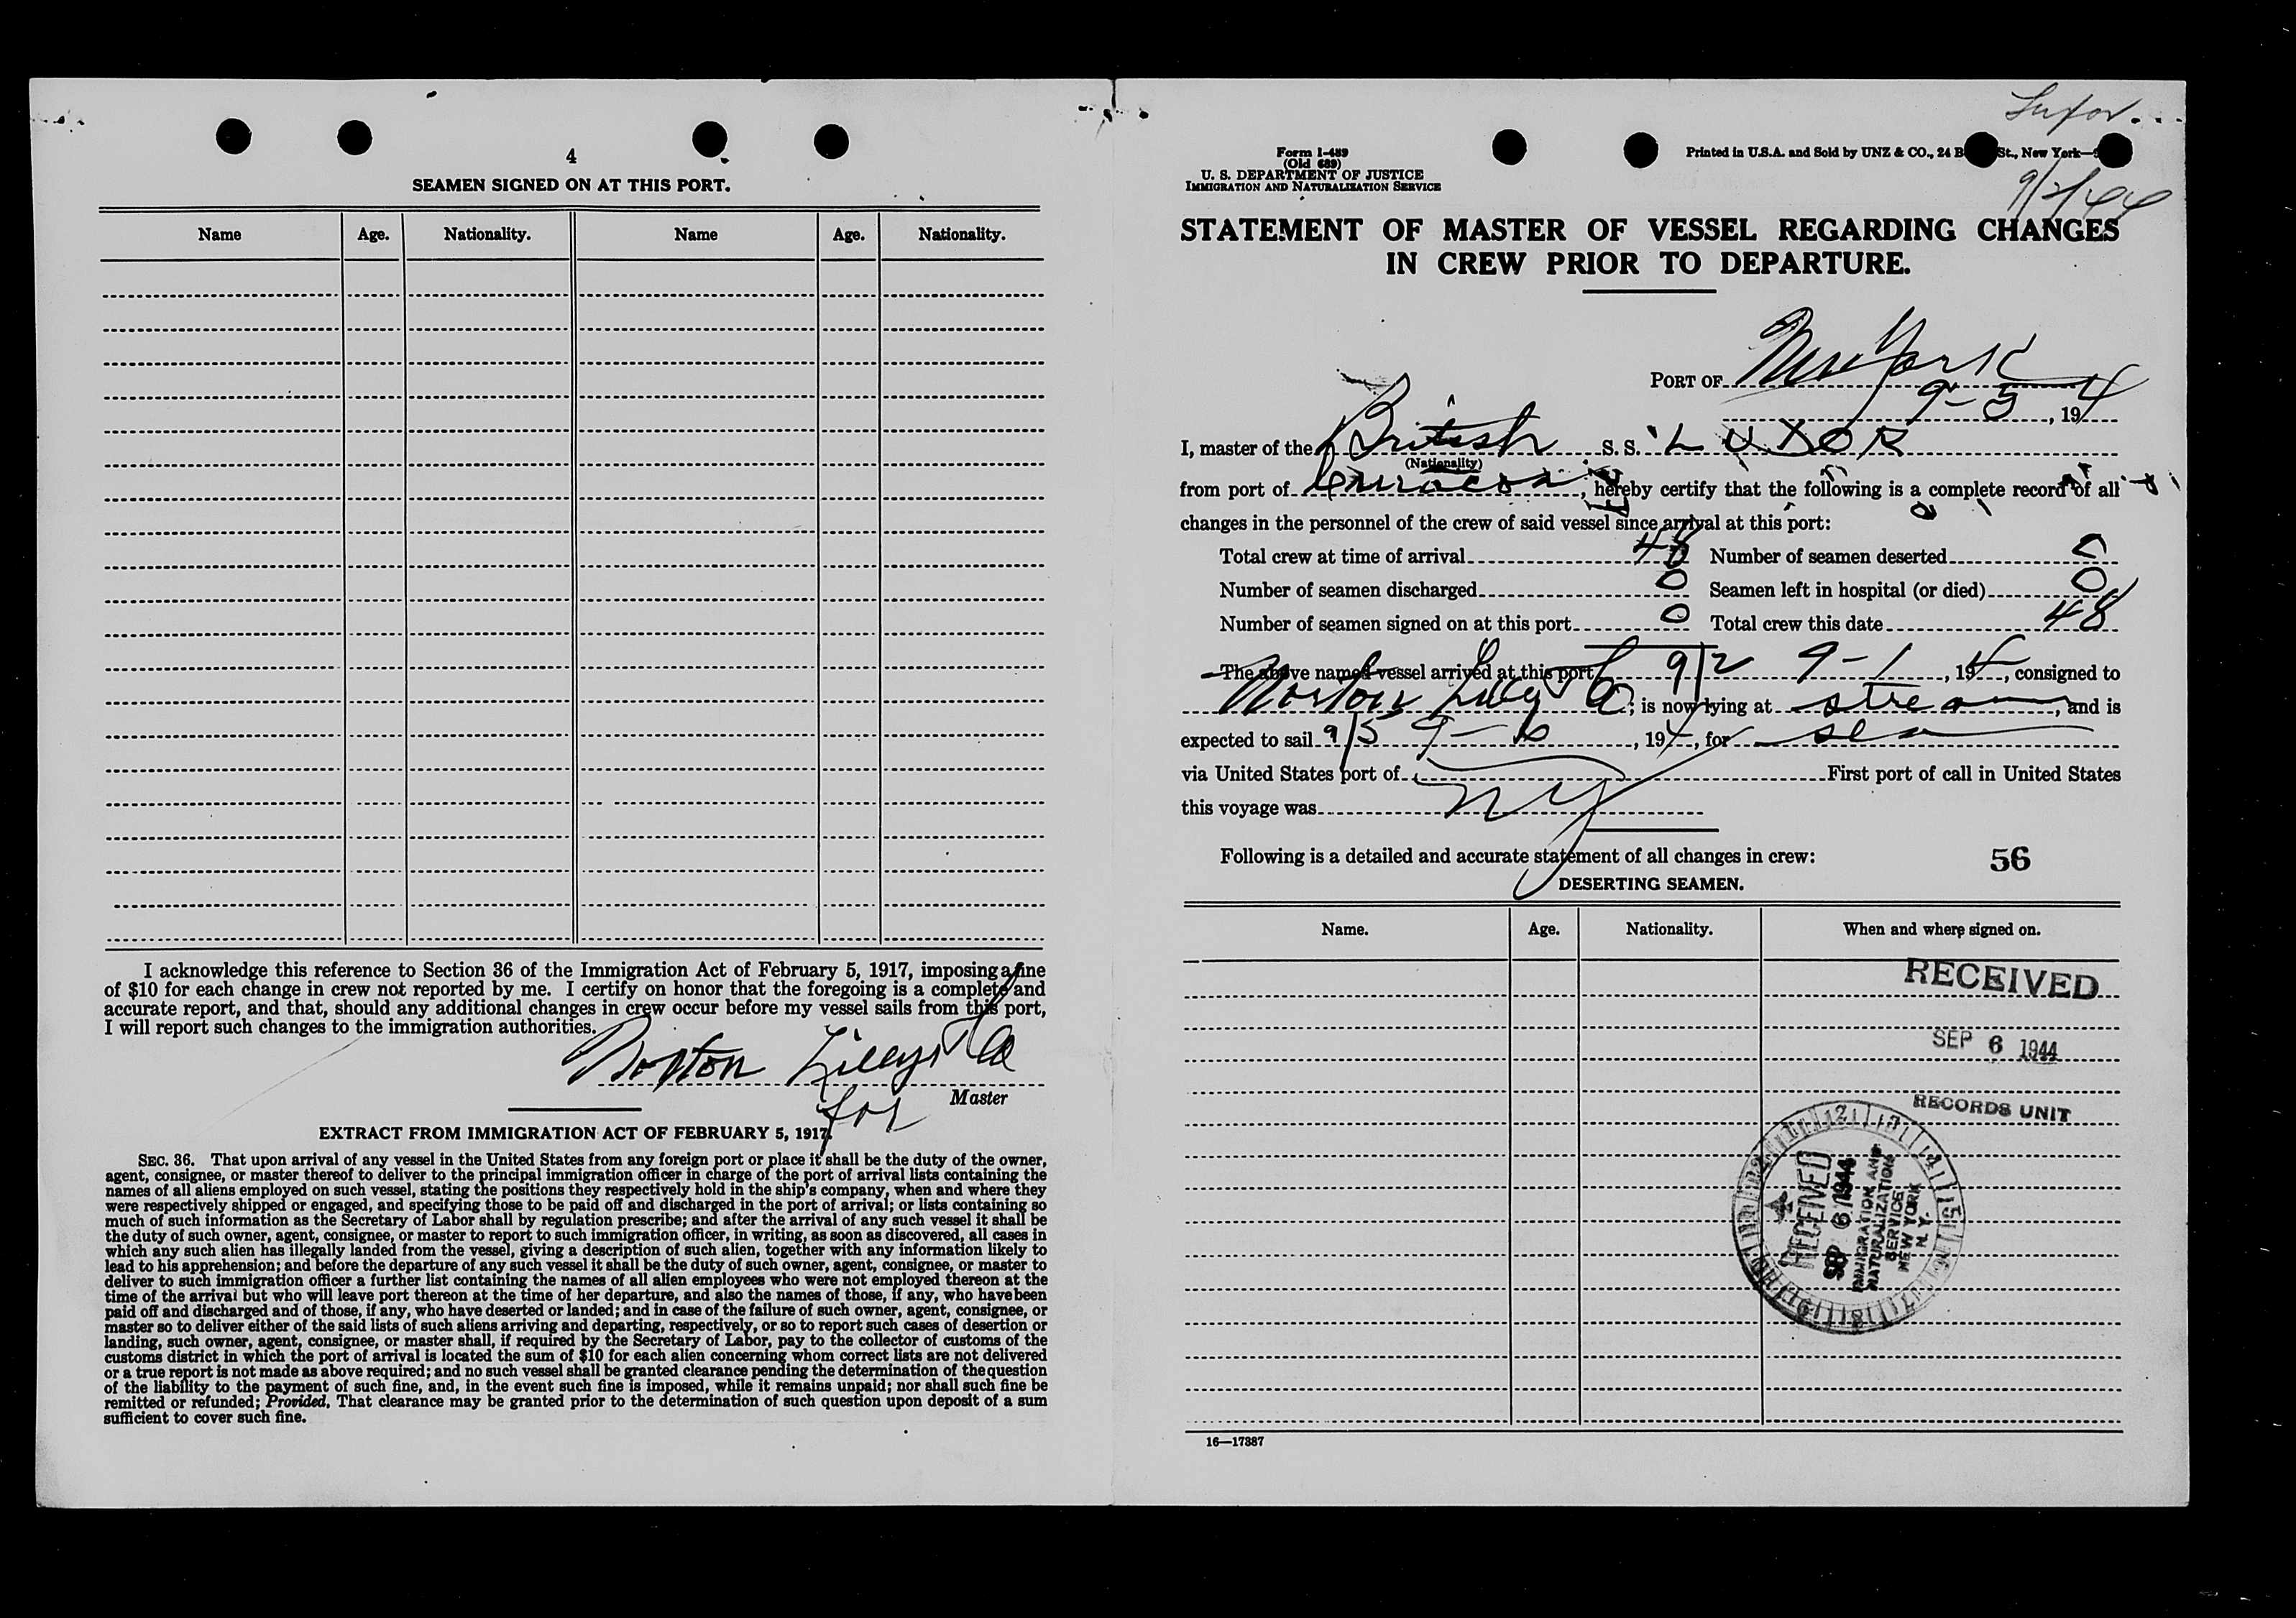 4
SEAMEN SIGNED ON AT THIS PORT.
Name Age. Nationality. Name Age. Nationality.
I acknowledge this reference to Section 36 of the Immigration Act of February 5, 1917, imposing a fine
of $10 for each change in crew not reported by me. I certify on honor that the foregoing is a complete and
accurate report, and that, should any additional changes in crew occur before my vessel sails from this port,
I will report such changes to the immigration authorities.
Norton Lilly & Co
for Master
EXTRACT FROM IMMIGRATION ACT OF FEBRUARY 5, 1917.
SEC. 36. That upon arrival of any vessel in the United States from any foreign port or place it shall be the duty of the owner,
agent, consignee, or master thereof to deliver to the principal immigration officer in charge of the port of arrival lists containing the
names of all aliens employed on such vessel, stating the positions they respectively hold in the ship's company, when and where they
were respectively shipped or engaged, and specifying those to be paid off and discharged in the port of arrival; or lists containing so
much of such information as the Secretary of Labor shall by regulation prescribe; and after the arrival of any such vessel it shall be
the duty of such owner, agent, consignee, or master to report to such immigration officer, in writing, as soon as discovered, all cases in
which any such alien has illegally landed from the vessel, giving a description of such alien, together with any information likely to
lead to his apprehension; and before the departure of any such vessel it shall be the duty of such owner, agent, consignee, or master to
deliver to such immigration officer a further list containing the names of all alien employees who were not employed thereon at the
time of the arrival but who will leave port thereon at the time of her departure, and also the names of those, if any, who have been
paid off and discharged and of those, if any, who have deserted or landed; and in case of the failure of such owner, agent, consignee, or
master so to deliver either of the said lists of such aliens arriving and departing, respectively, or so to report such cases of desertion or
landing, such owner, agent, consignee, or master shall, if required by the Secretary of Labor, pay to the collector of customs of the
customs district in which the port of arrival is located the sum of $10 for each alien concerning whom correct lists are not delivered
or a true report is not made as above required; and no such vessel shall be granted clearance pending the determination of the question
of the liability to the payment of such fine, and, in the event such fine is imposed, while it remains unpaid; nor shall such fine be
remitted or refunded; Provided, That clearance may be granted prior to the determination of such question upon deposit of a sum
sufficient to cover such fine.
Luxor.
Form I-489
(Old 689)
U. S. DEPARTMENT OF JUSTICE
IMMIGRATION AND NATURALIZATION SERVICE
Printed in U.S.A. and Sold by UNZ & CO., 24 St., New York
9/2/44
STATEMENT OF MASTER OF VESSEL REGARDING CHANGES
IN CREW PRIOR TO DEPARTURE.
PORT OF New York
9-5, 194
I, master of the British S. S. LUXOR
(Nationality)
from port of Curacoa, hereby certify that the following is a complete record of all
changes in the personnel of the crew of said vessel since arrival at this port:
Total crew at time of arrival 48 Number of seamen deserted
Number of seamen discharged 0 Seamen left in hospital (or died) 0
Number of seamen signed on at this port 0 Total crew this date 48
The above named vessel arrived at this port 9/2 9-1, 194, consigned to
Norton Lilly & Co; is now lying at stream, and is
expected to sail 9/5 9-6, 194, for sea
via United States port of First port of call in United States
this voyage was NY
Following is a detailed and accurate statement of all changes in crew: 56
DESERTING SEAMEN.
Name. Age. Nationality. When and where signed on.
RECEIVED
SEP 6 1944
RECORDS UNIT
RECEIVED
SEP 6 1944
IMMIGRATION AND
NATURALIZATION
SERVICE
NEW YORK
N. Y.
16—17387